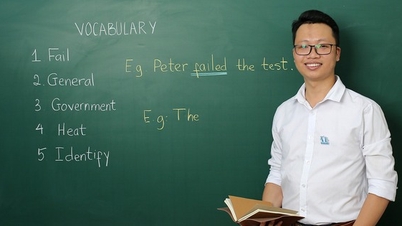 VOCABULARY
1 Fail
2 General
3 Government
4 Heat
5 Identify
Eg Peter failed the test.
Eg: The